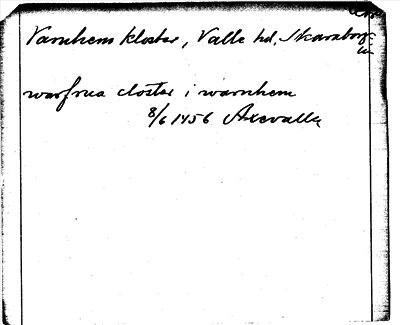 Varnhem kloster, Valle hd, Skaraborgs
län
warfrua closter i warnhem
8/6 1456 Axevalla